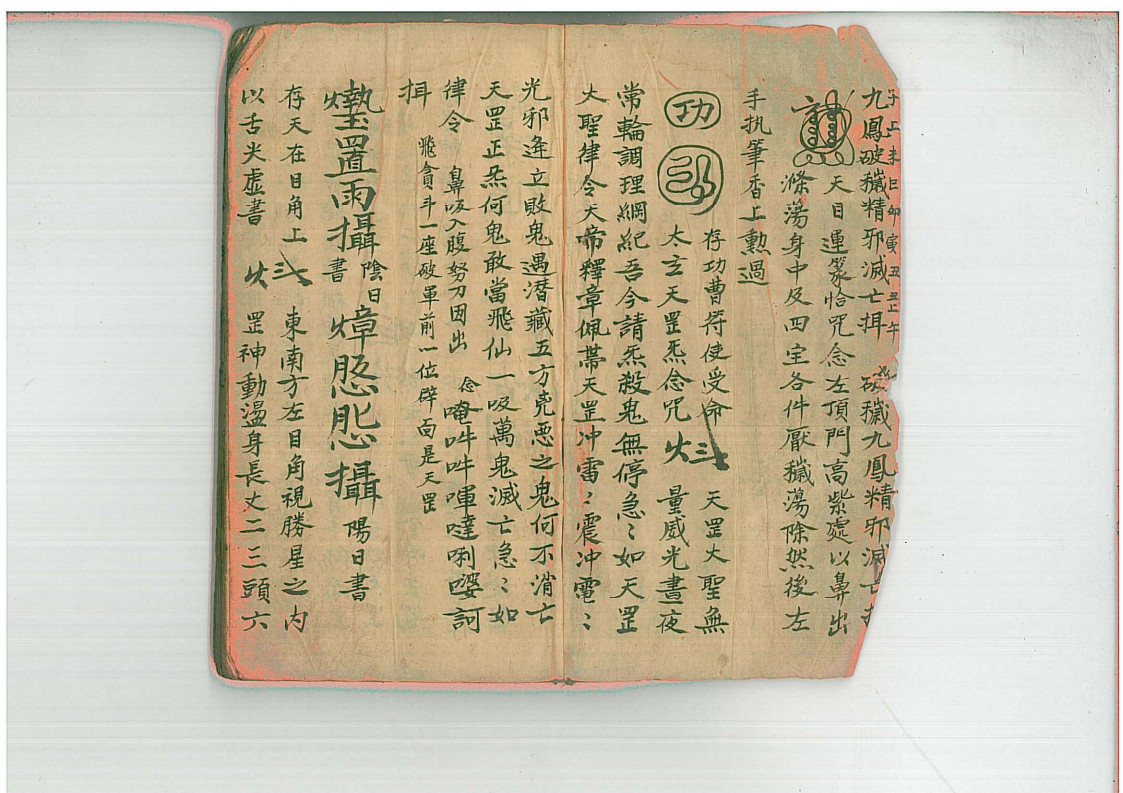 子上未巳卯寅丑丑上午
九鳳破穢精邪滅亡揖 破穢九鳳精邪滅亡
天目運篆恰咒念左頂門高紫處以鼻出
滌蕩身中及四室各件厭穢蕩除然後左
手执筆香上勲過
功
存功曹符使受命 天罡大聖無
太玄天罡炁念咒 量威光晝夜
常輪調理綱紀吾今請炁殺鬼無停急〻如天罡
大聖律令天帝釋章佩帶天罡冲雷〻震冲電〻
光邪逢立敗鬼遇潜藏五方兇悪之鬼何不消亡
天罡正炁何鬼敢當飛仙一吸萬鬼滅亡急〻如
律令 鼻吸入腹努力因出 念唵吽吽㖶噠唎㜑訶
揖 飛貪斗一座破軍前一位辟面是天罡
置雨攝書 陰日 攝陽日書
存天在目角上 東南方左目角視勝星之内
以舌尖虚書 罡神動溫身長丈二三頭六